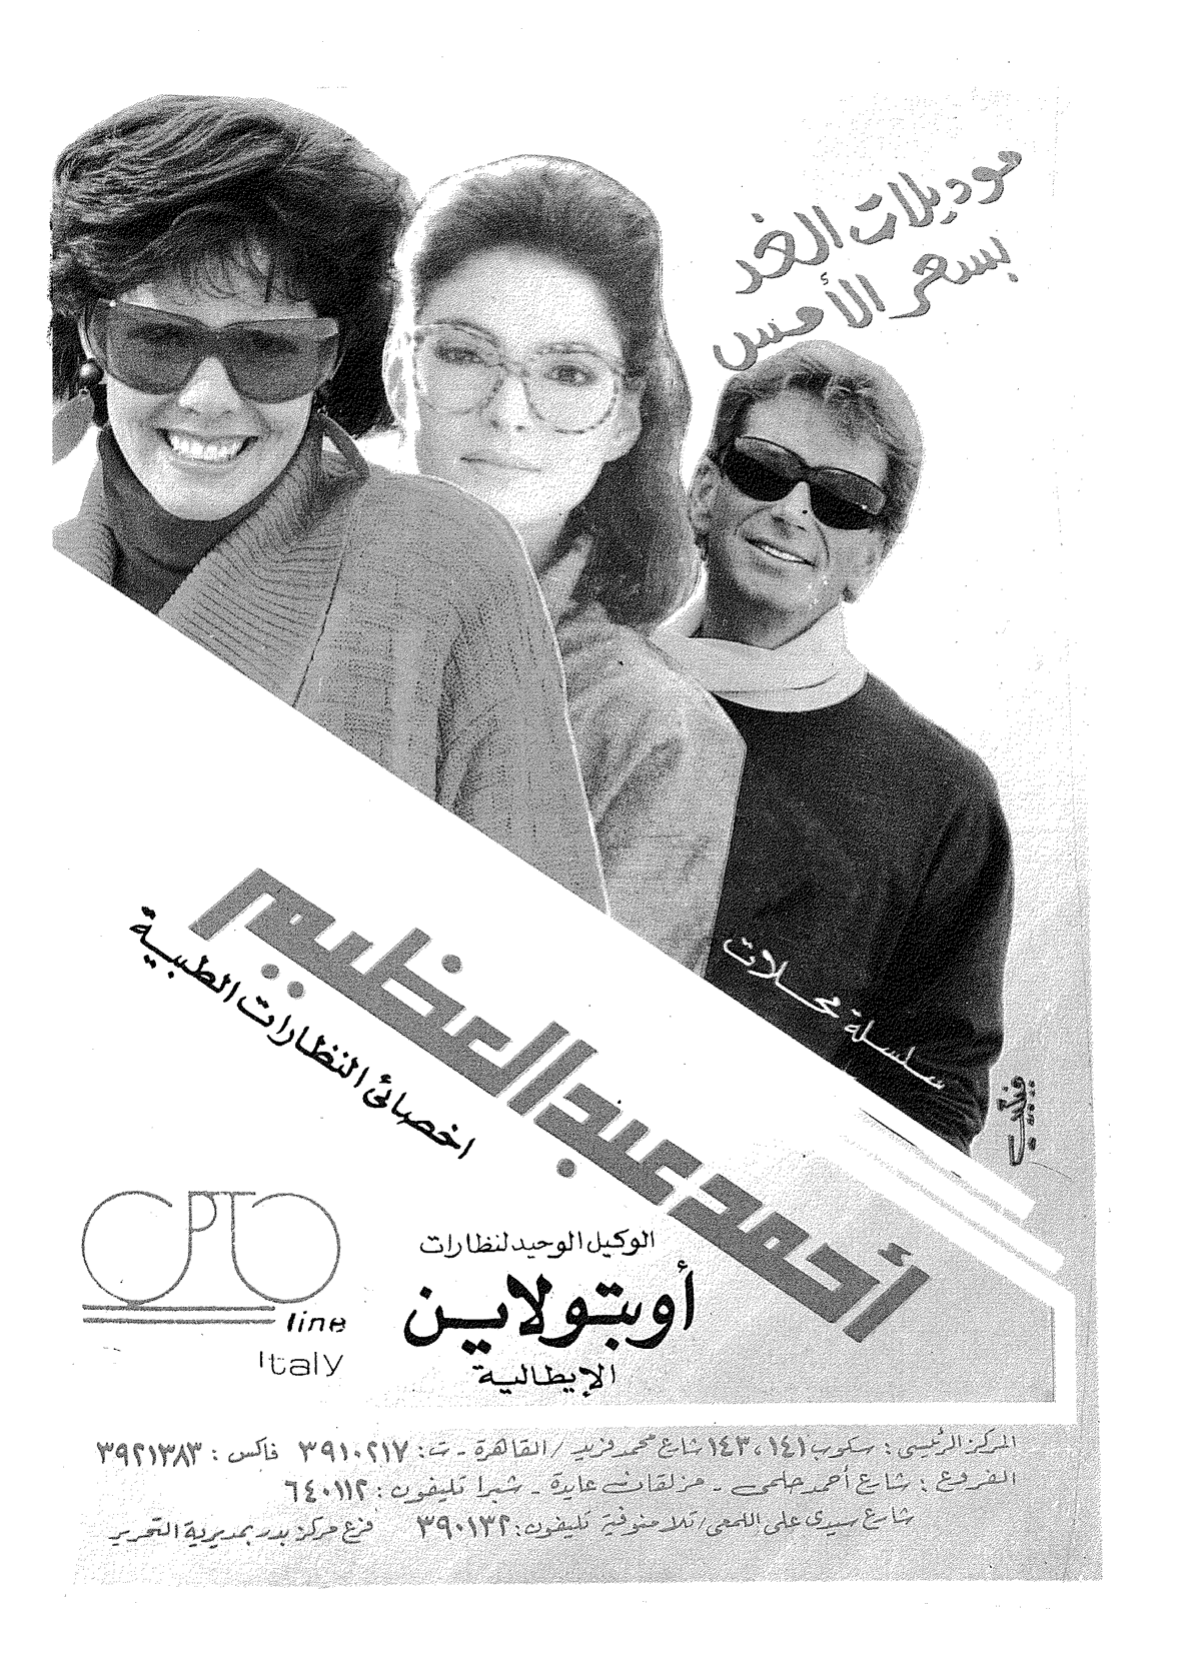 موديلات الغد
بسعر الأمس
سلسلة محلات
أحمد عبد العظيم
اخصائى النظارات الطبية
OPTO
line
Italy
الوكيل الوحيد لنظارات
أوبتولاين
الإيطالية
المركز الرئيسى : سكوب ١٤١ ، ١٤٣ شارع محمد فريد / القاهرة - ت : ٣٩١٠٢١٧ فاكس : ٣٩٢١٣٨٣
الفروع : شارع أحمد حلمى - مزلقان عايدة - شبرا تليفون : ٦٤٠١١٢
شارع سيدى على اللمعى / تلا منوفية تليفون : ٣٩٠١٣٢ فرع مركز بدر بمديرية التحرير